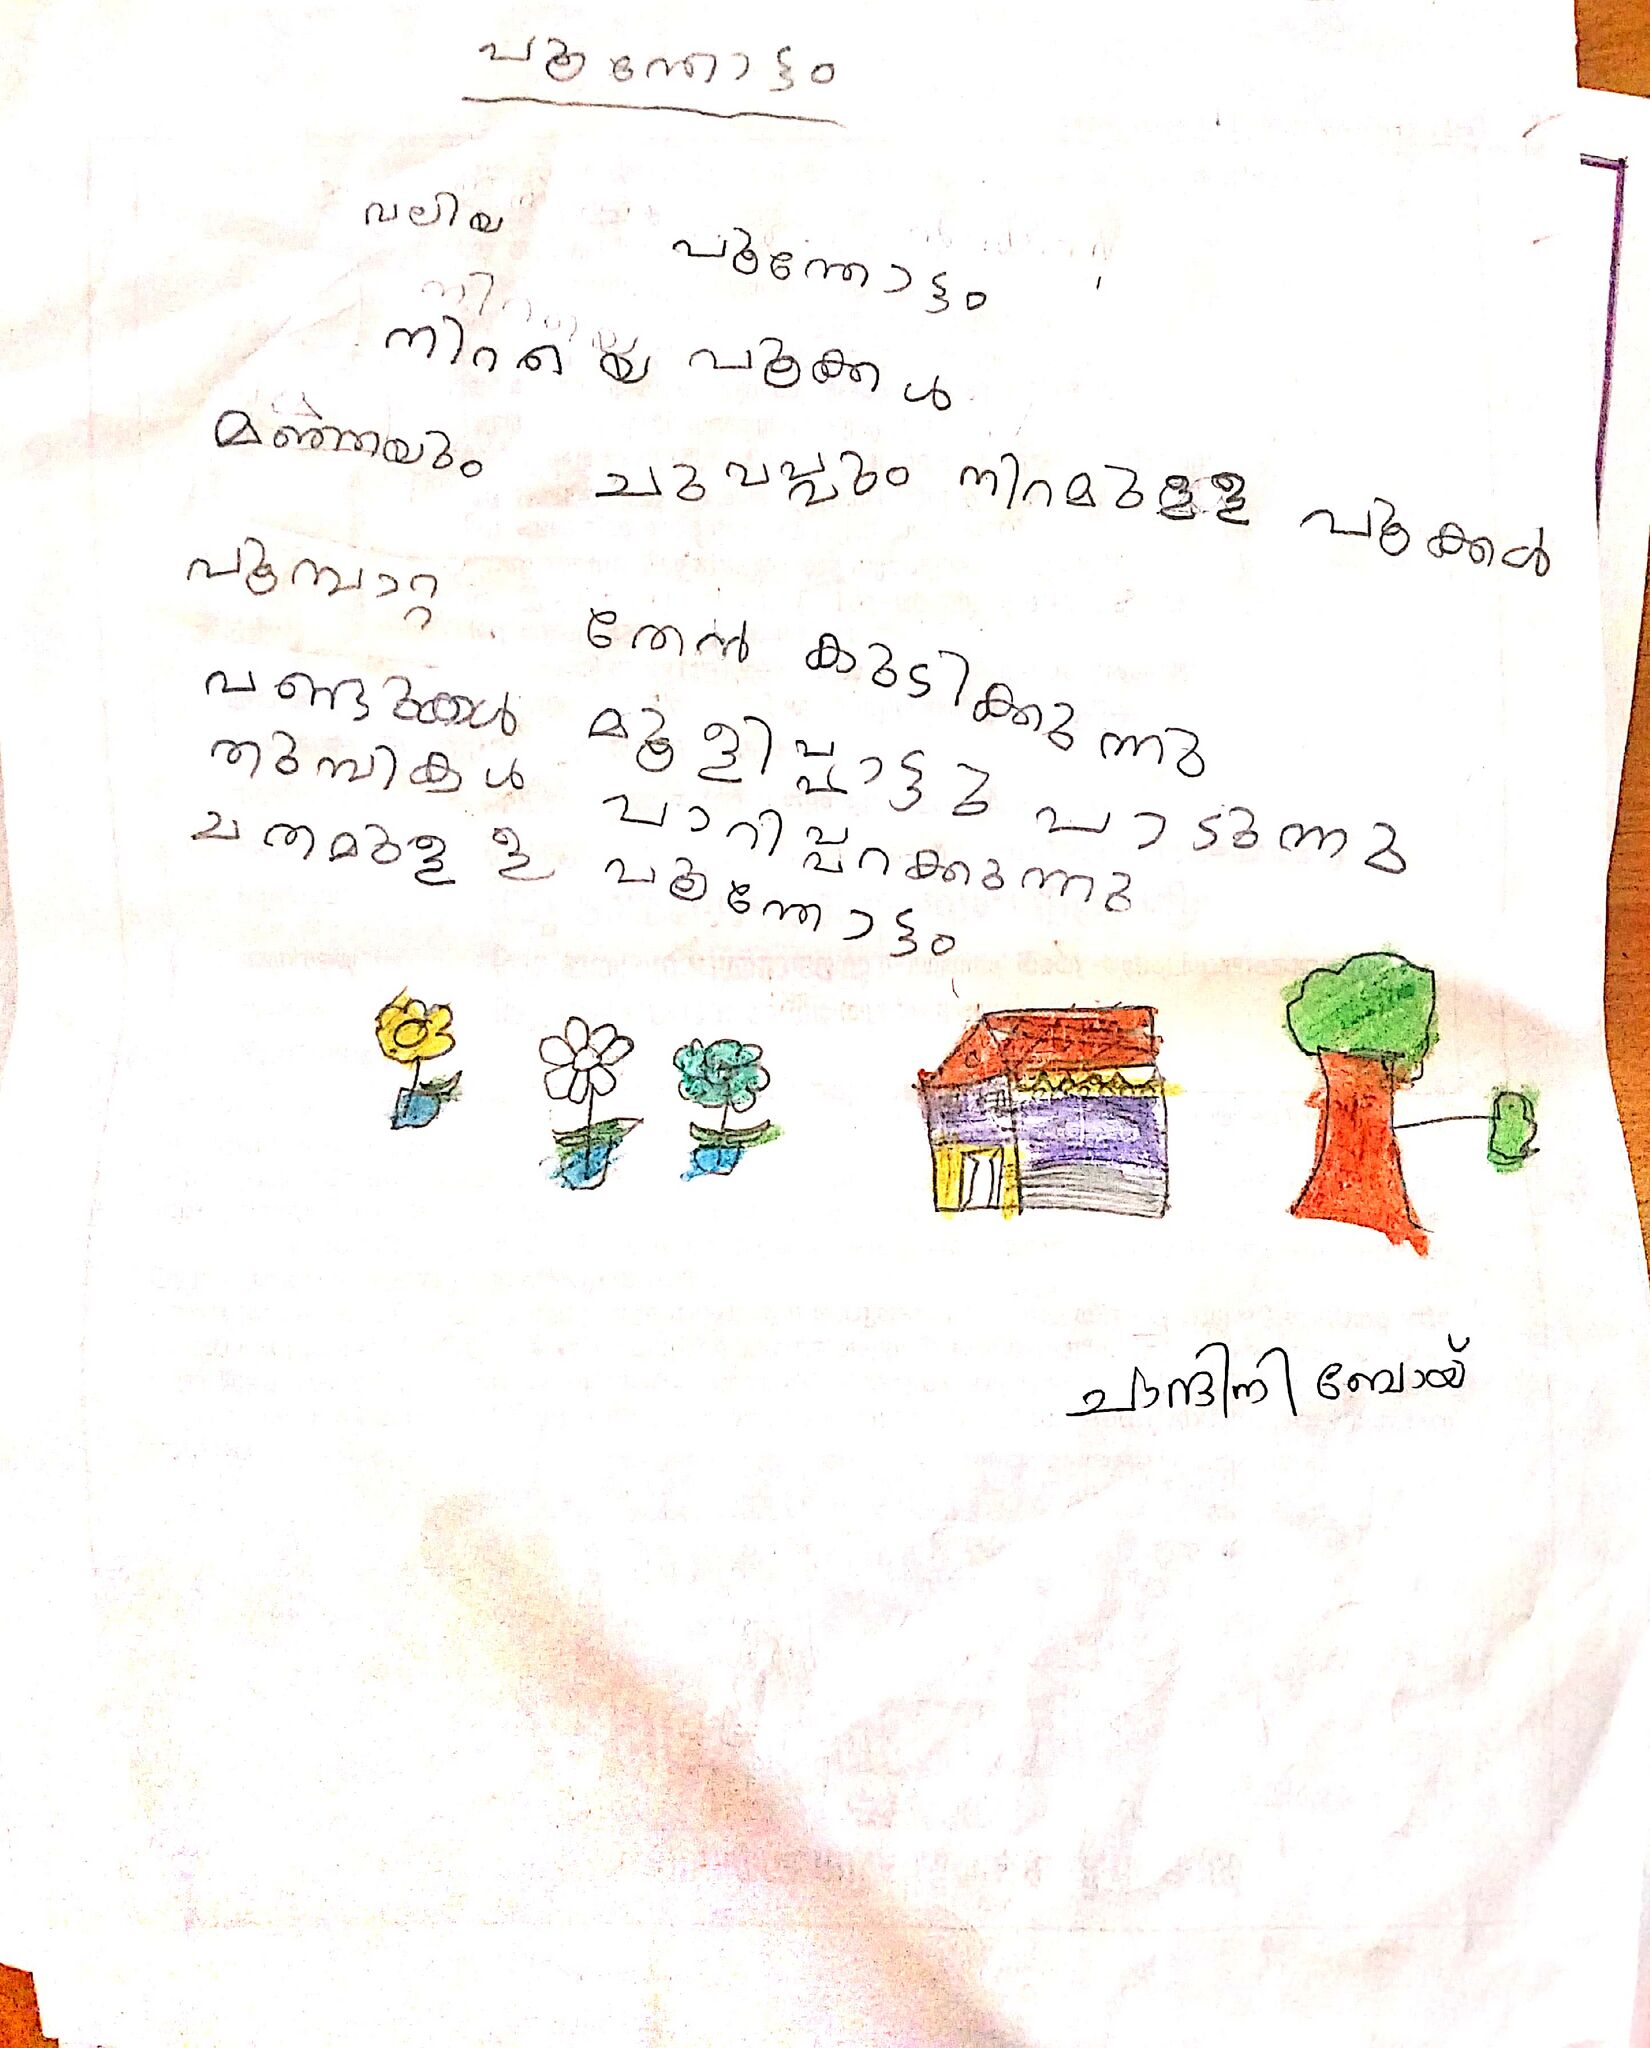 പൂന്തോട്ടം
വലിയ പൂന്തോട്ടം
നിറയെ പൂക്കൾ
മഞ്ഞയും ചുവപ്പും നിറമുള്ള പൂക്കൾ
പൂമ്പാറ്റ തേൻ കുടിക്കുന്നു
വണ്ടുകൾ മൂളിപ്പാട്ടു പാടുന്നു
തുമ്പികൾ പാറിപ്പറക്കുന്നു
ചന്തമുള്ള പൂന്തോട്ടം
ചാന്ദിനി ബോയ്